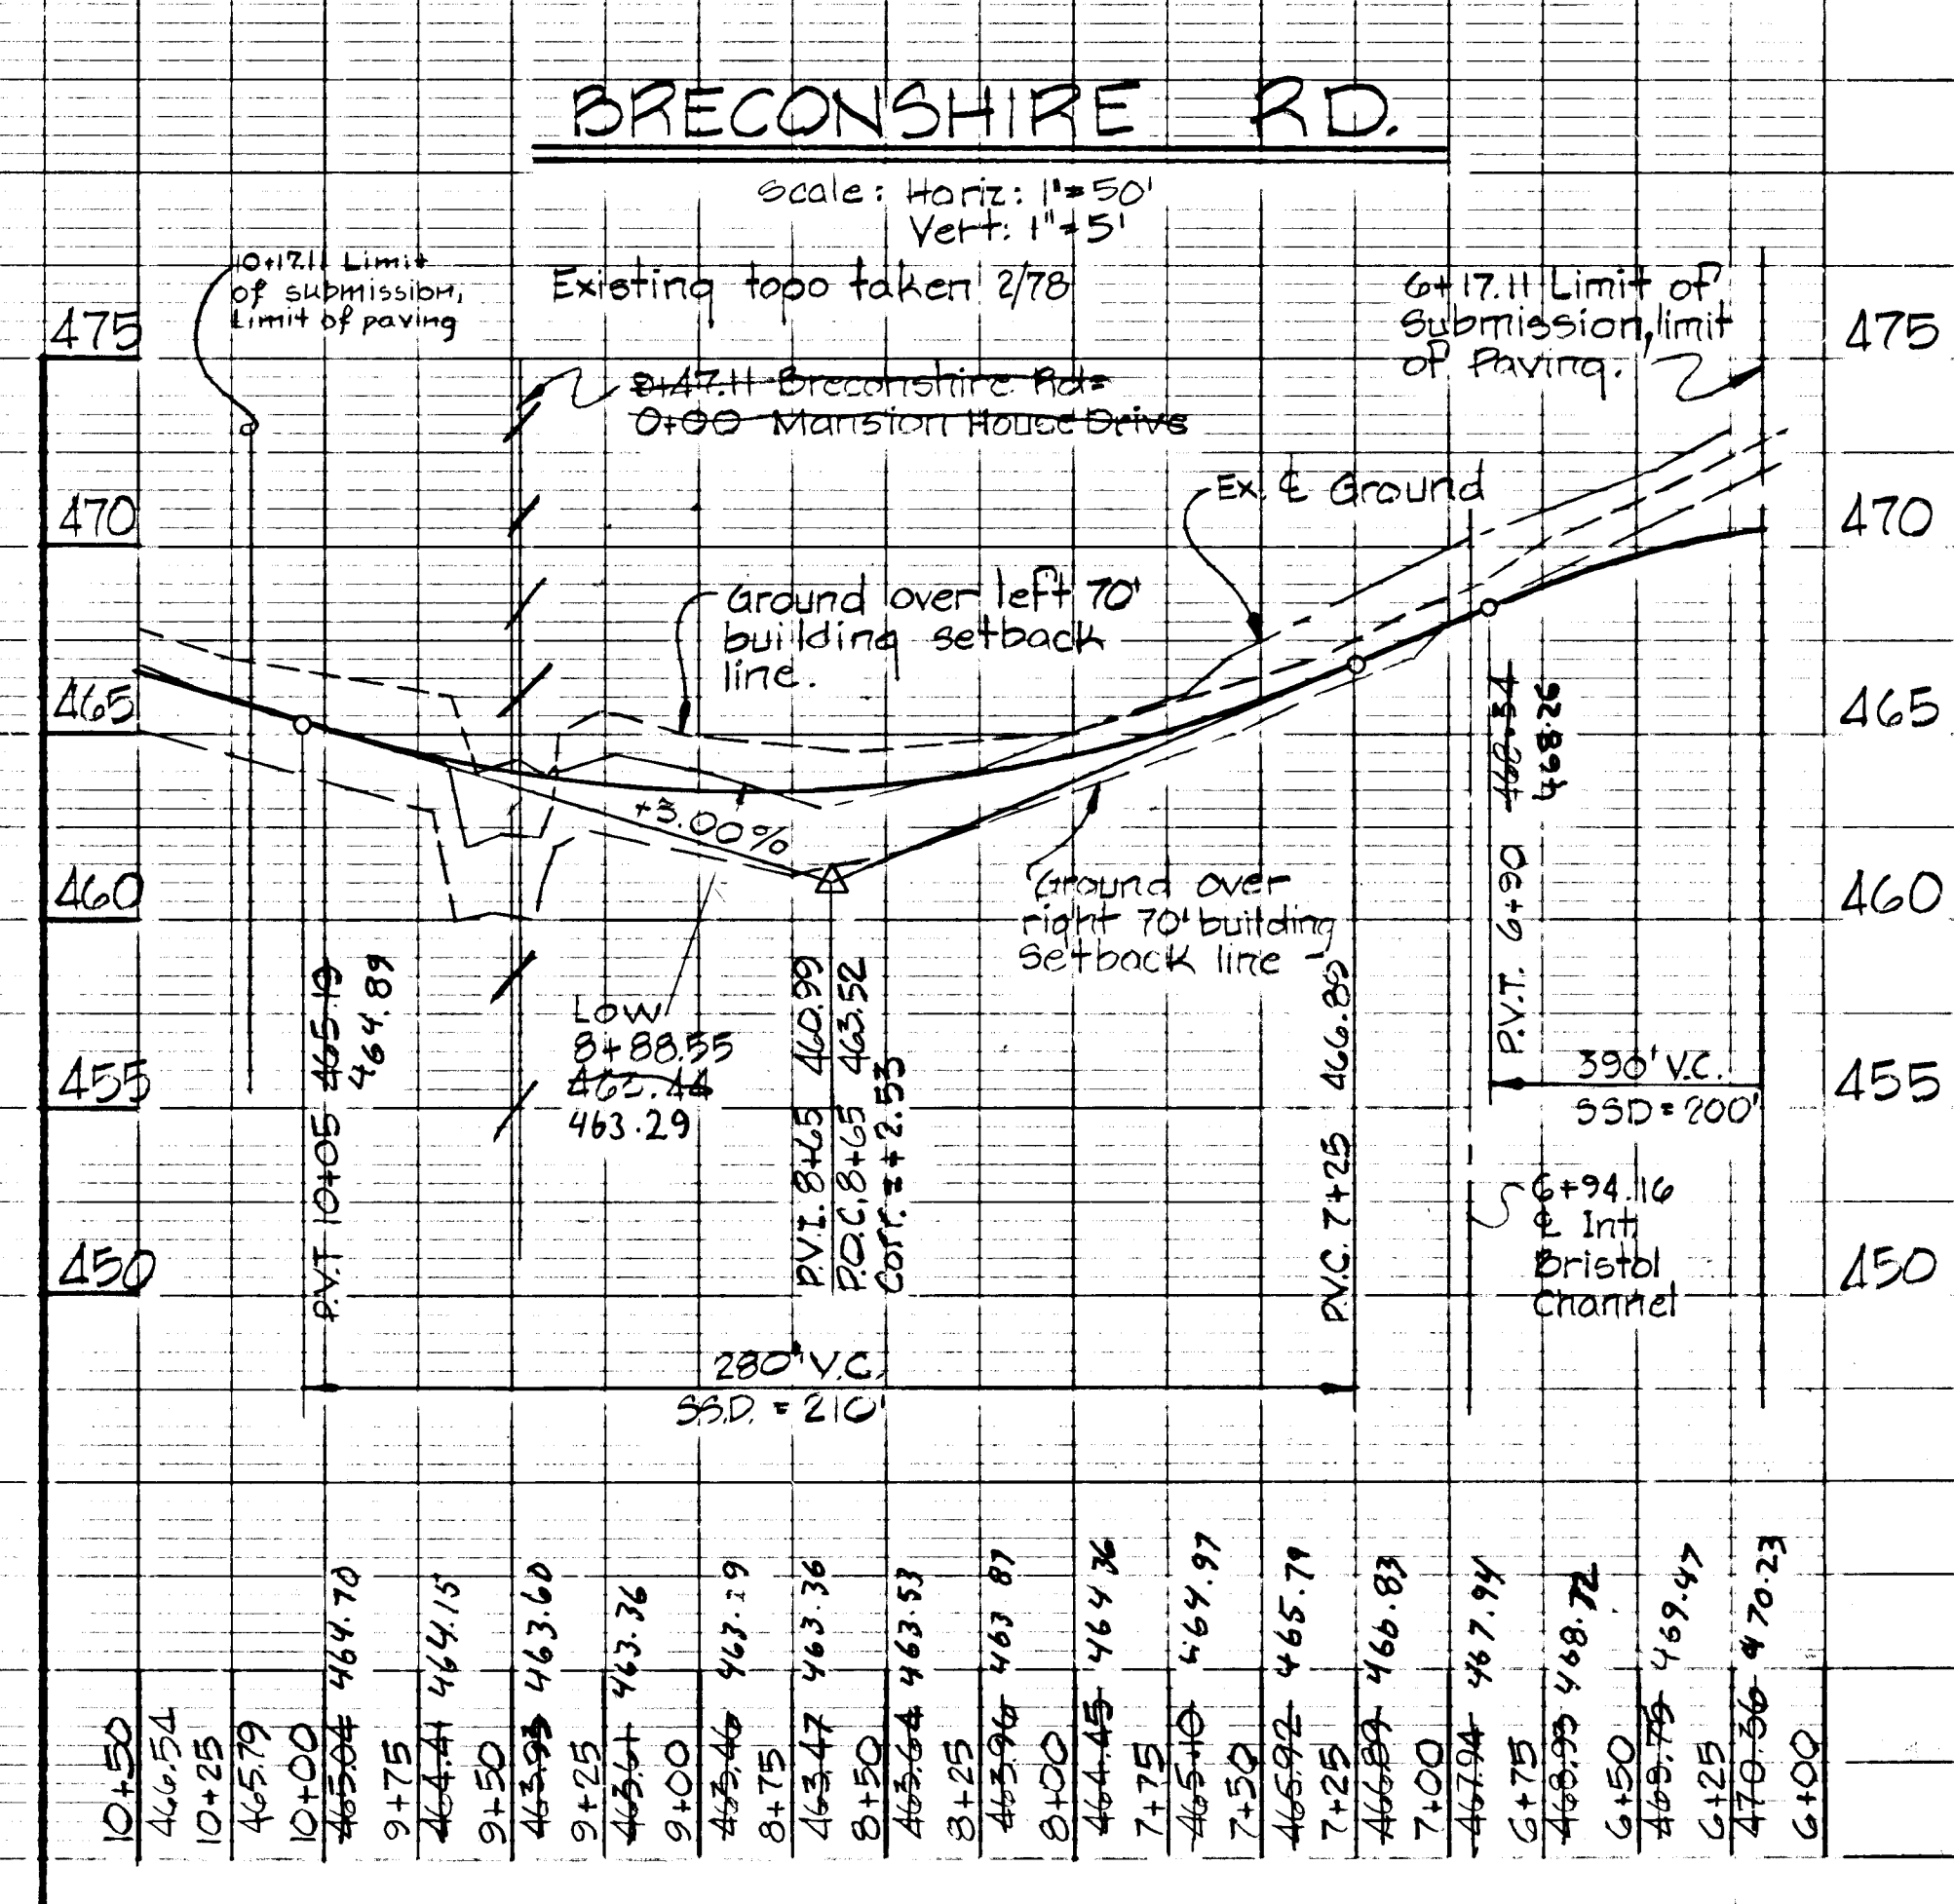 BRECONSHIRE RD.
Scale: Horiz: 1"=50'
Vert: 1"=5'
Existing topo taken 2/78
10+17.11 Limit
of submission,
Limit of paving
6+17.11 Limit of
Submission, limit
of Paving.
475
475
9+47.11 Breconshire Rd=
0+00 Mansion House Drive
Ex. ℄ Ground
470
470
Ground over left 70'
building setback
line.
465
465
+3.00%
460
460
Ground over
right 70' building
Setback line
LOW
8+88.55
463.44
463.29
P.V.T 10+05 465.19
464.89
P.V.I. 8+65 460.99
P.O.C. 8+65 463.52
Corr. = + 2.53
P.V.C. 7+25 466.89
P.V.T. 6+90 468.34
468.26
455
455
390' V.C.
SSD = 200'
6+94.16
℄ Int.
Bristol
Channel
450
450
280' V.C.
S.S.D. = 210'
10+50
466.54
10+25
465.79
10+00
465.04 464.70
9+75
464.41 464.15
9+50
463.93 463.60
9+25
463.61 463.36
9+00
463.46 463.29
8+75
463.47 463.36
8+50
463.64 463.53
8+25
463.96 463 87
8+00
464.45 464 36
7+75
465.10 464.97
7+50
465.92 465.79
7+25
466.89 466.83
7+00
467.94 467.94
6+75
468.93 468.72
6+50
469.75 469.47
6+25
470.36 470.23
6+00